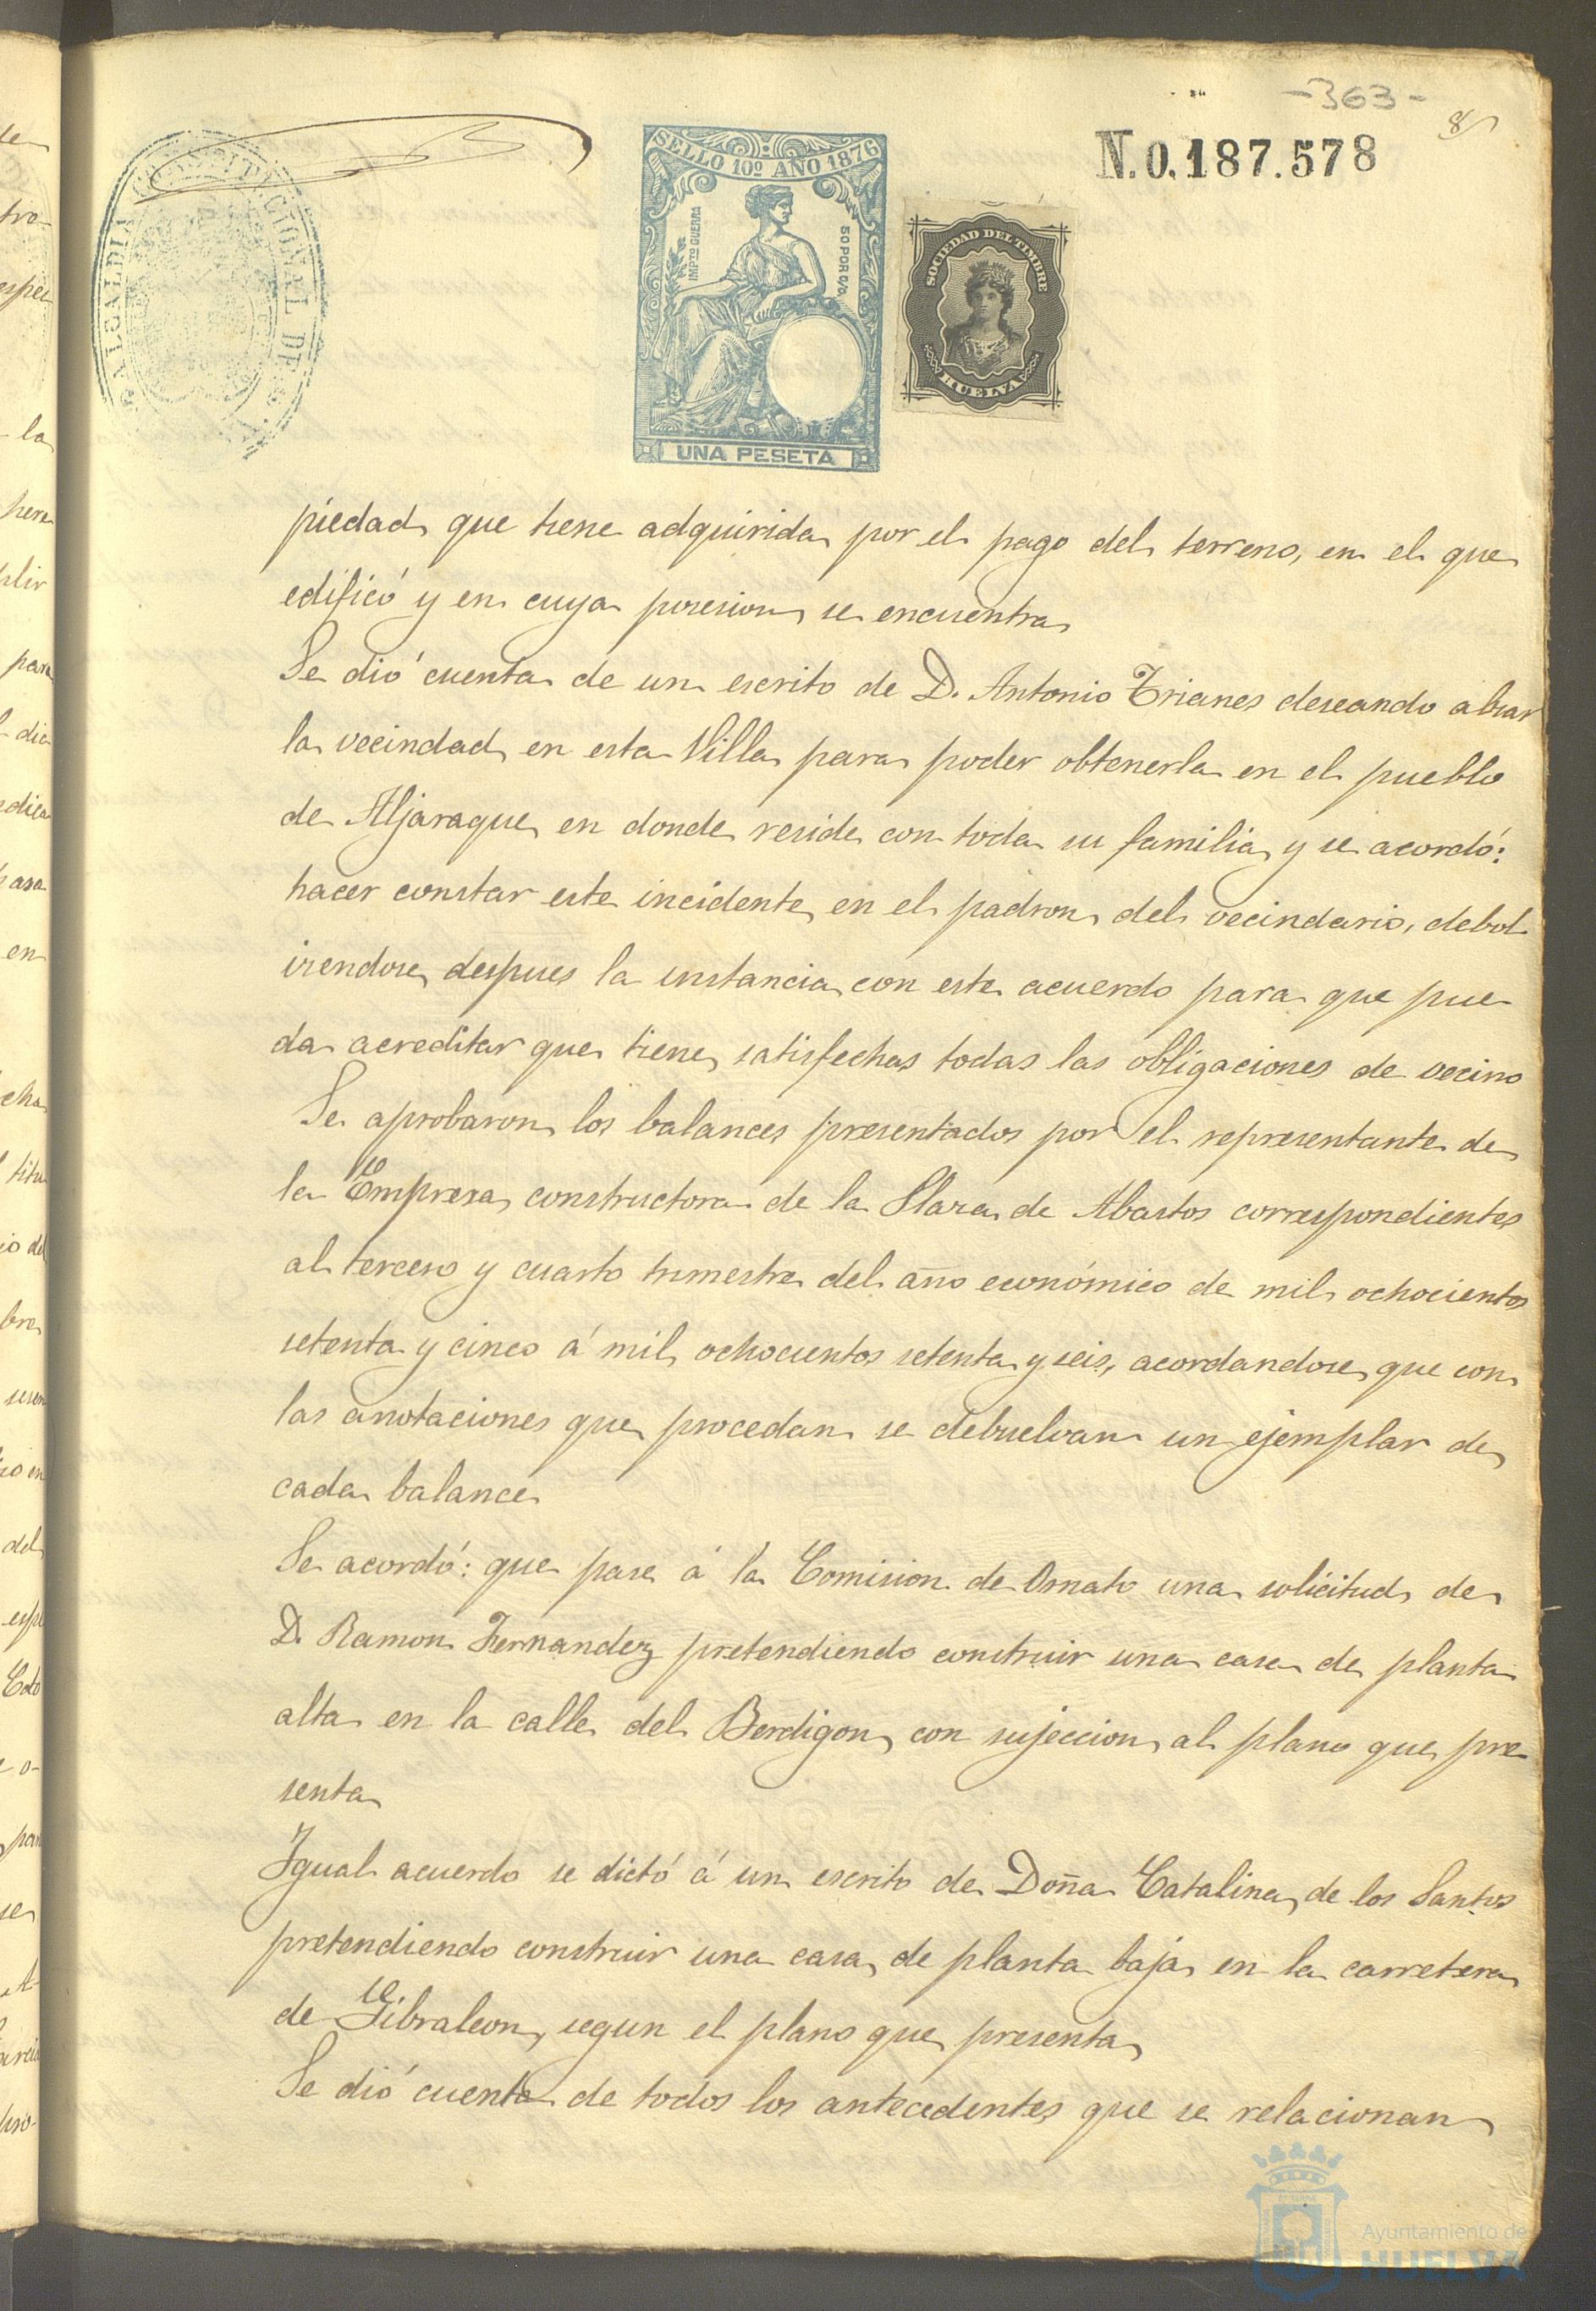 -363-
8
N.0.187.578
ALCALDIA CONSTITUCIONAL DE
SELLO 10º AÑO 1876
IMPTO GUERRA
50 POR 0/0
UNA PESETA
SOCIEDAD DEL TIMBRE
HUELVA
piedad que tiene adquirida por el pago del terreno, en el que
edificó y en cuya posesion se encuentra
Se dió cuenta de un escrito de D. Antonio Trianes deseando alsar
la vecindad en esta Villa para poder obtenerla en el pueblo
de Aljaraque en donde reside con toda su familia y se acordó:
hacer constar este incidente en el padron del vecindario, debol
viendose despues la instancia con este acuerdo para que pue
da acreditar que tiene satisfechas todas las obligaciones de vecino
Se aprobaron los balances presentados por el representante de
la Empresa constructora de la Plaza de Abastos correspondientes
al tercero y cuarto trimestre del año económico de mil ochocientos
setenta y cinco á mil ochocientos setenta y seis, acordandose que con
las anotaciones que procedan se debuelvan un ejemplar de
cada balance
Se acordó: que pase á la Comision de Ornato una solicitud de
D. Ramon Fernandez pretendiendo construir una casa de planta
alta en la calle del Berdigon, con sujeccion al plano que pre
senta
Igual acuerdo se dictó á un escrito de Doña Catalina de los Santos
pretendiendo construir una casa de planta baja en la carretera
de Gibraleon, segun el plano que presenta
Se dió cuenta de todos los antecedentes que se relacionan
Ayuntamiento de
HUELVA